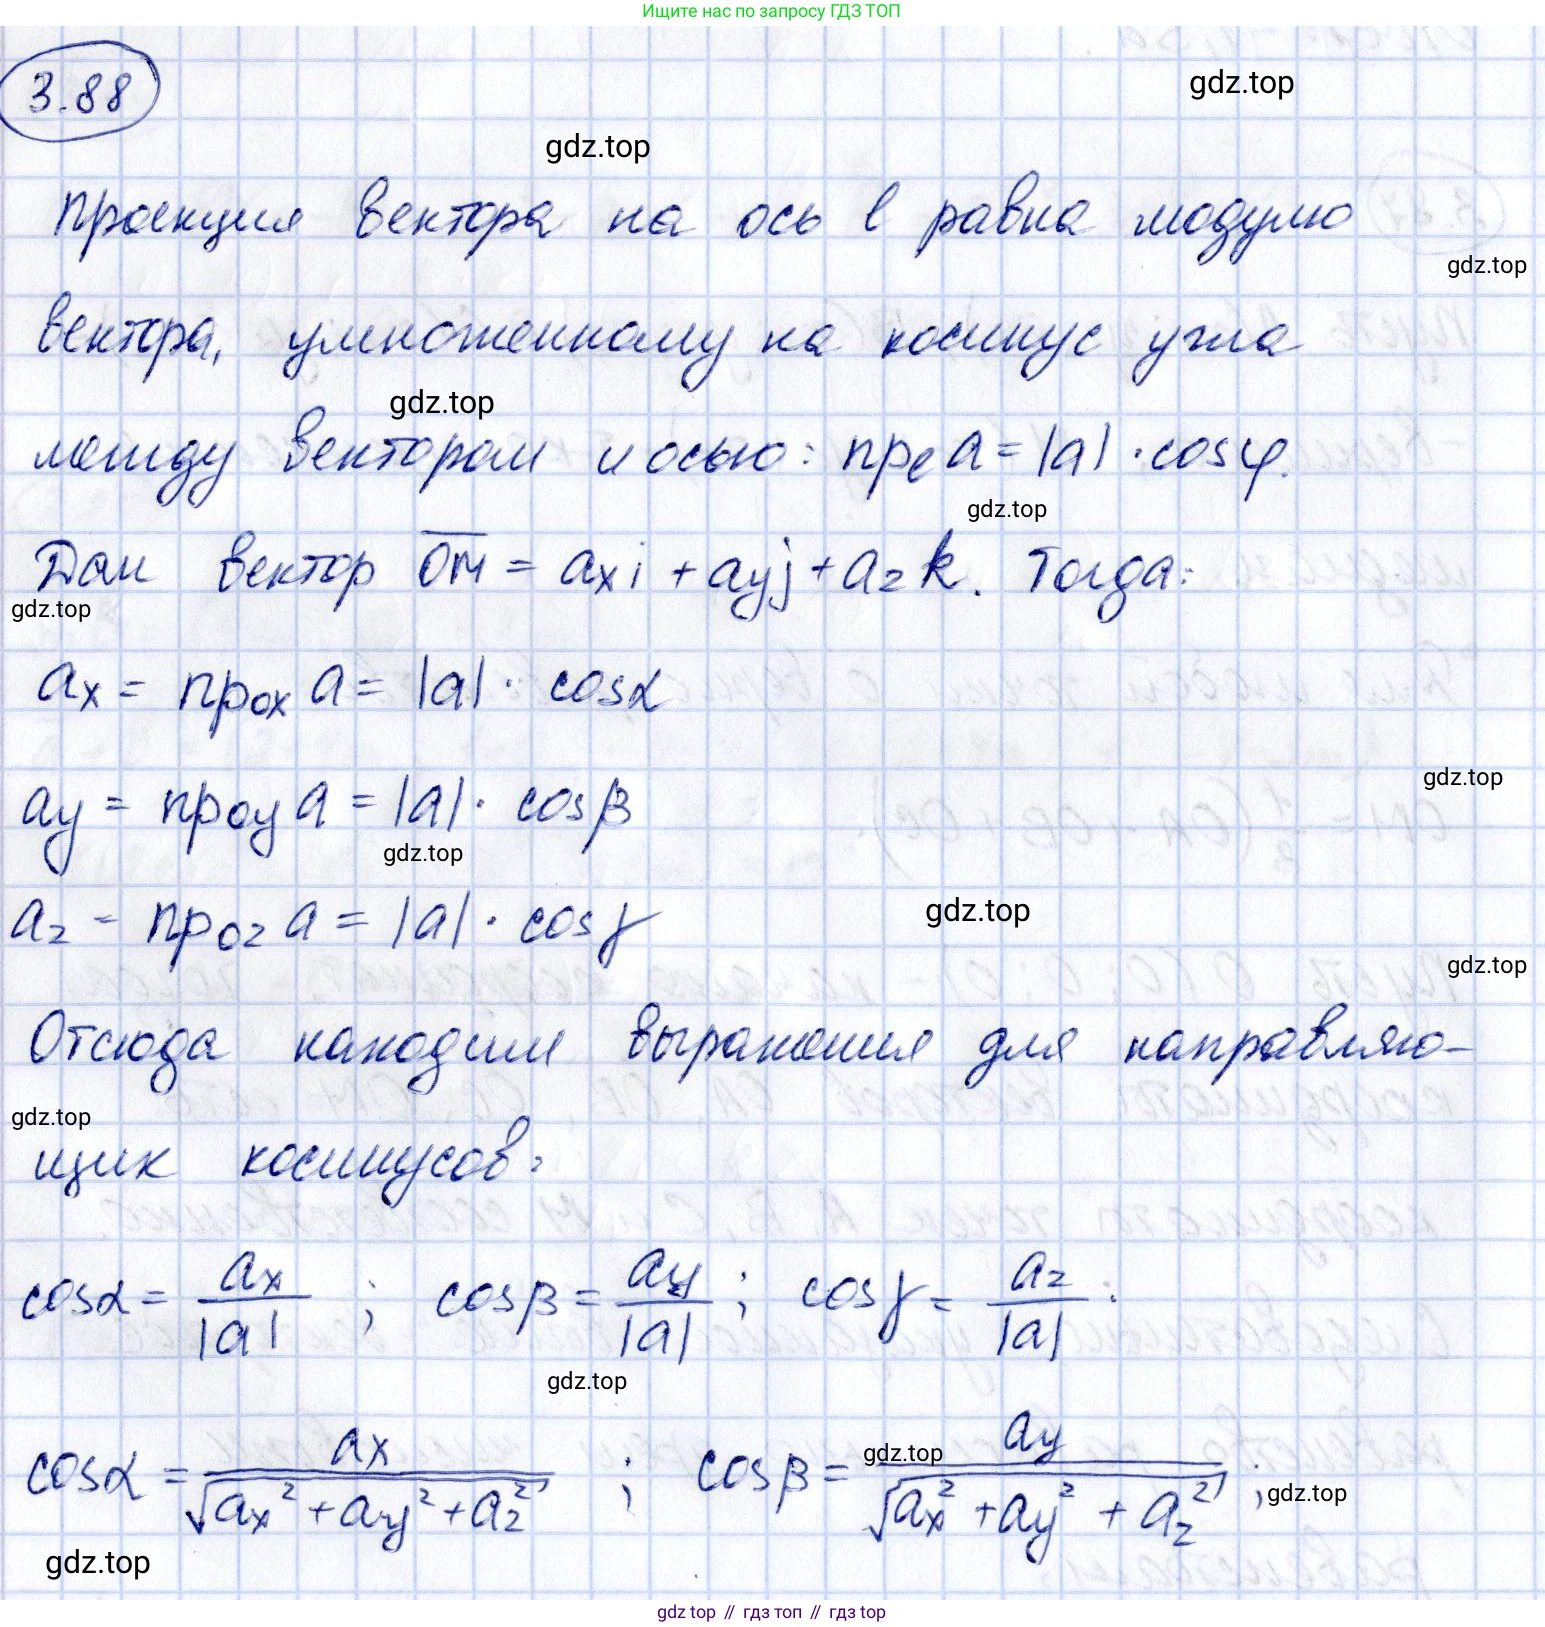 Ищите нас по запросу ГДЗ ТОП
3.88
gdz.top
gdz.top
Проекция вектора на ось l равна модулю
gdz.top
вектора, умноженному на косинус угла
gdz.top
между вектором и осью: пр_l a = |a| · cos φ.
gdz.top
Дан вектор OM̅ = aₓi + a_y j + a_z k. Тогда:
gdz.top
aₓ = пр_ox a = |a| · cos α
gdz.top
a_y = пр_oy a = |a| · cos β
gdz.top
a_z = пр_oz a = |a| · cos γ
gdz.top
gdz.top
Отсюда находим выражения для направляю-
gdz.top
щих косинусов:
cos α = aₓ/|a| ; cos β = a_y/|a| ; cos γ = a_z/|a| :
gdz.top
cos α = aₓ/√(aₓ² + a_y² + a_z²) ; cos β = a_y/√(aₓ² + a_y² + a_z²) ;
gdz.top
gdz.top
gdz.top
gdz top // гдз топ // gdz top